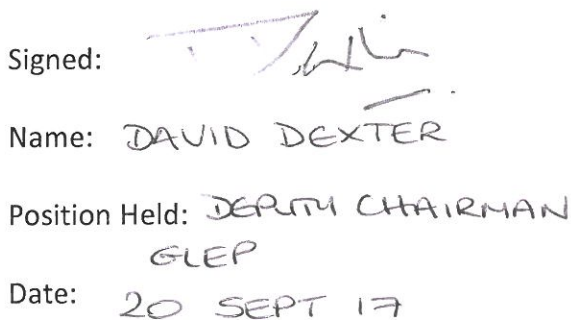 Signed:
Name: DAVID DEXTER
Position Held: DEPUTY CHAIRMAN
GLEP
Date: 20 SEPT 17